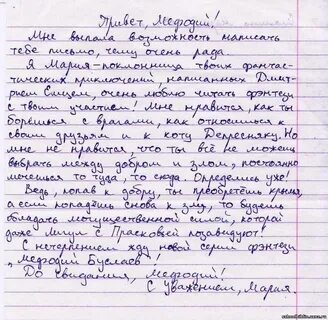 Привет, Мефодий!
Мне выпала возможность написать
тебе письмо, чему очень рада.
Я Мария-поклонница твоих фантас-
тических приключений, написанных Дмит-
рием Емцем, очень люблю читать фэнтези
с твоим участием! Мне нравится, как ты
борешься с врагами, как относишься к
своим друзьям и к коту Депресняку. Но
мне не нравится что ты всё не можешь
выбрать между добром и злом, постоянно
мечешься то туда, то сюда. Определись уже!
Ведь, попав к добру, ты приобретёшь крылья,
а если попадёшь снова к злу, то будешь
обладать могущественной силой, которой
даже Лигул с Прасковьей позавидуют!
С нетерпением жду новой серии фэнтези
„Мефодий Буслаев!
До свидания, Мефодий!
С Уважением, Мария.